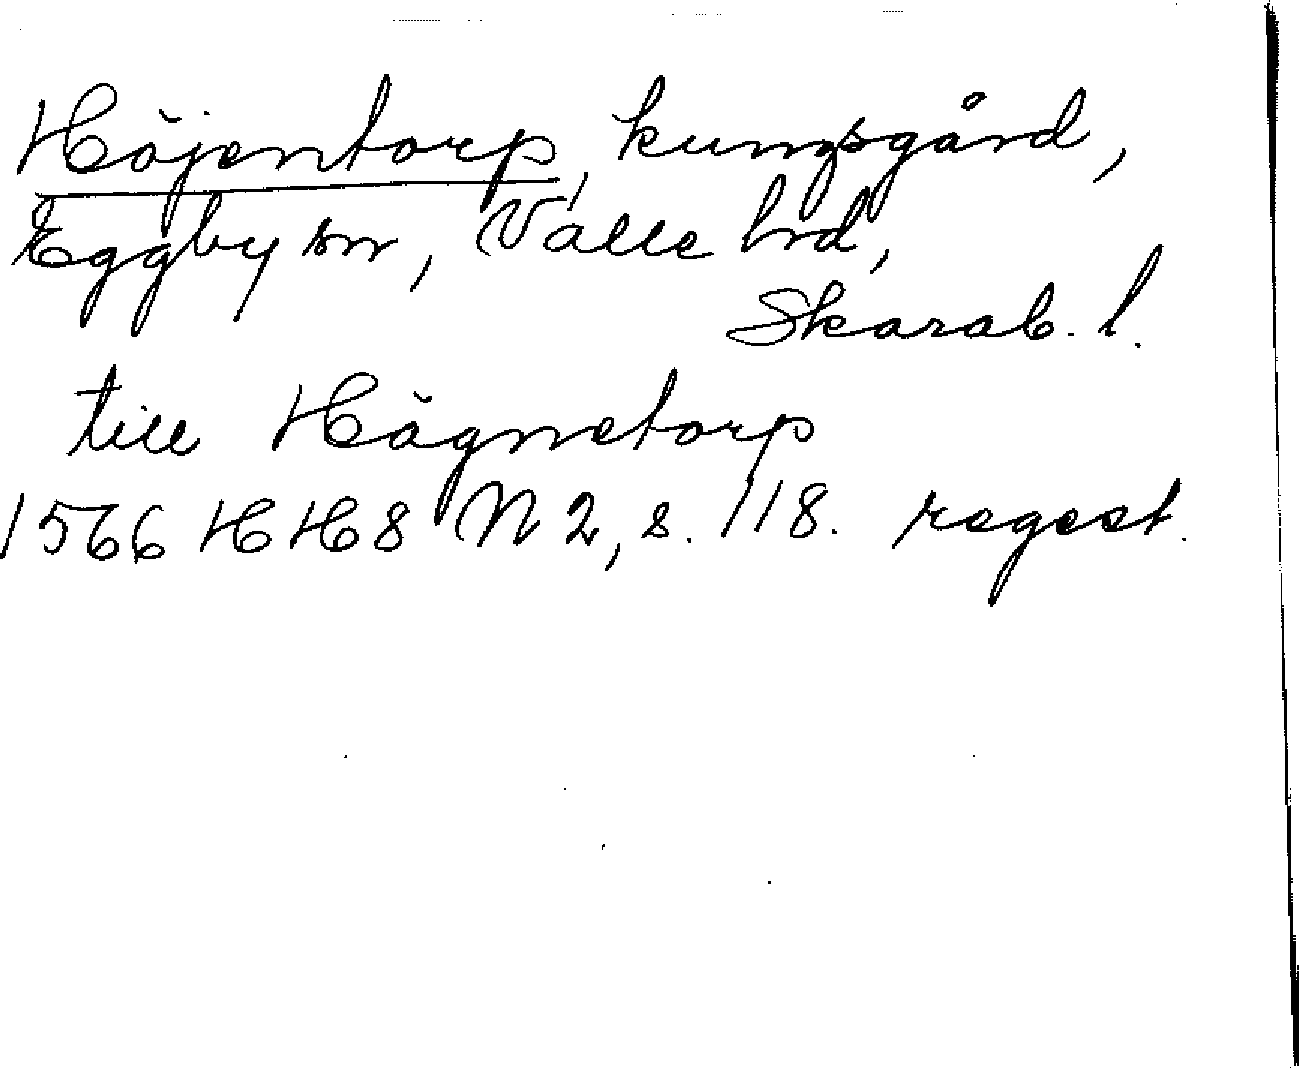 Höjentorp, kungsgård,
Eggby sn, Valle hrd,
Skarab. l.
till Högnetorp
1566 HH8 N2, s. 118. regest.